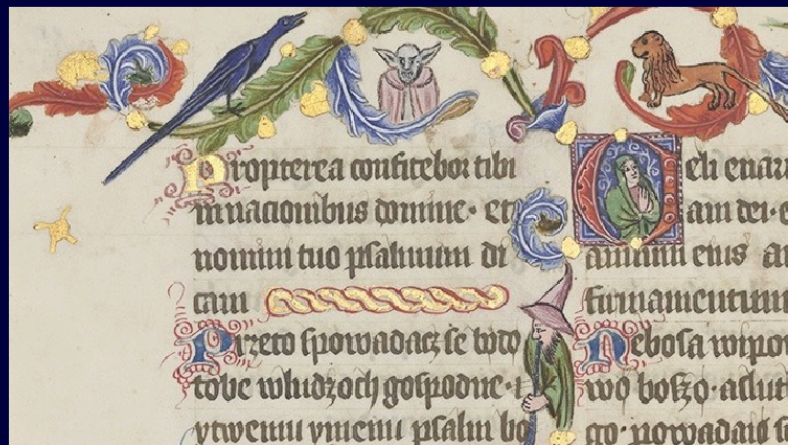 Propterea confitebor tibi
in nacionibus domine· et
nomini tuo psalmum di
cam
Przeto spowadacz se bødø
tobe wludzoch gospodne· ı
ytwemu ymenu psalm bo
Celi enar
am dei· e
eius
firmamentum
Nebosa
wo boszo· a
go· powadaio